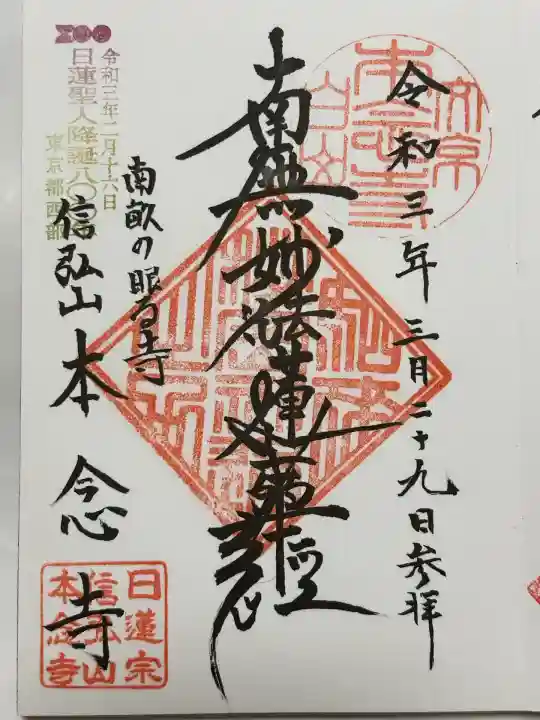 令和三年三月二十九日参拝
文京
本念寺
白山
南無妙法蓮華経
南畝の眠る寺
信弘山 本念寺
令和三年二月十六日
日蓮聖人降誕八〇〇年
東京都西部
日蓮宗
信弘山
本念寺